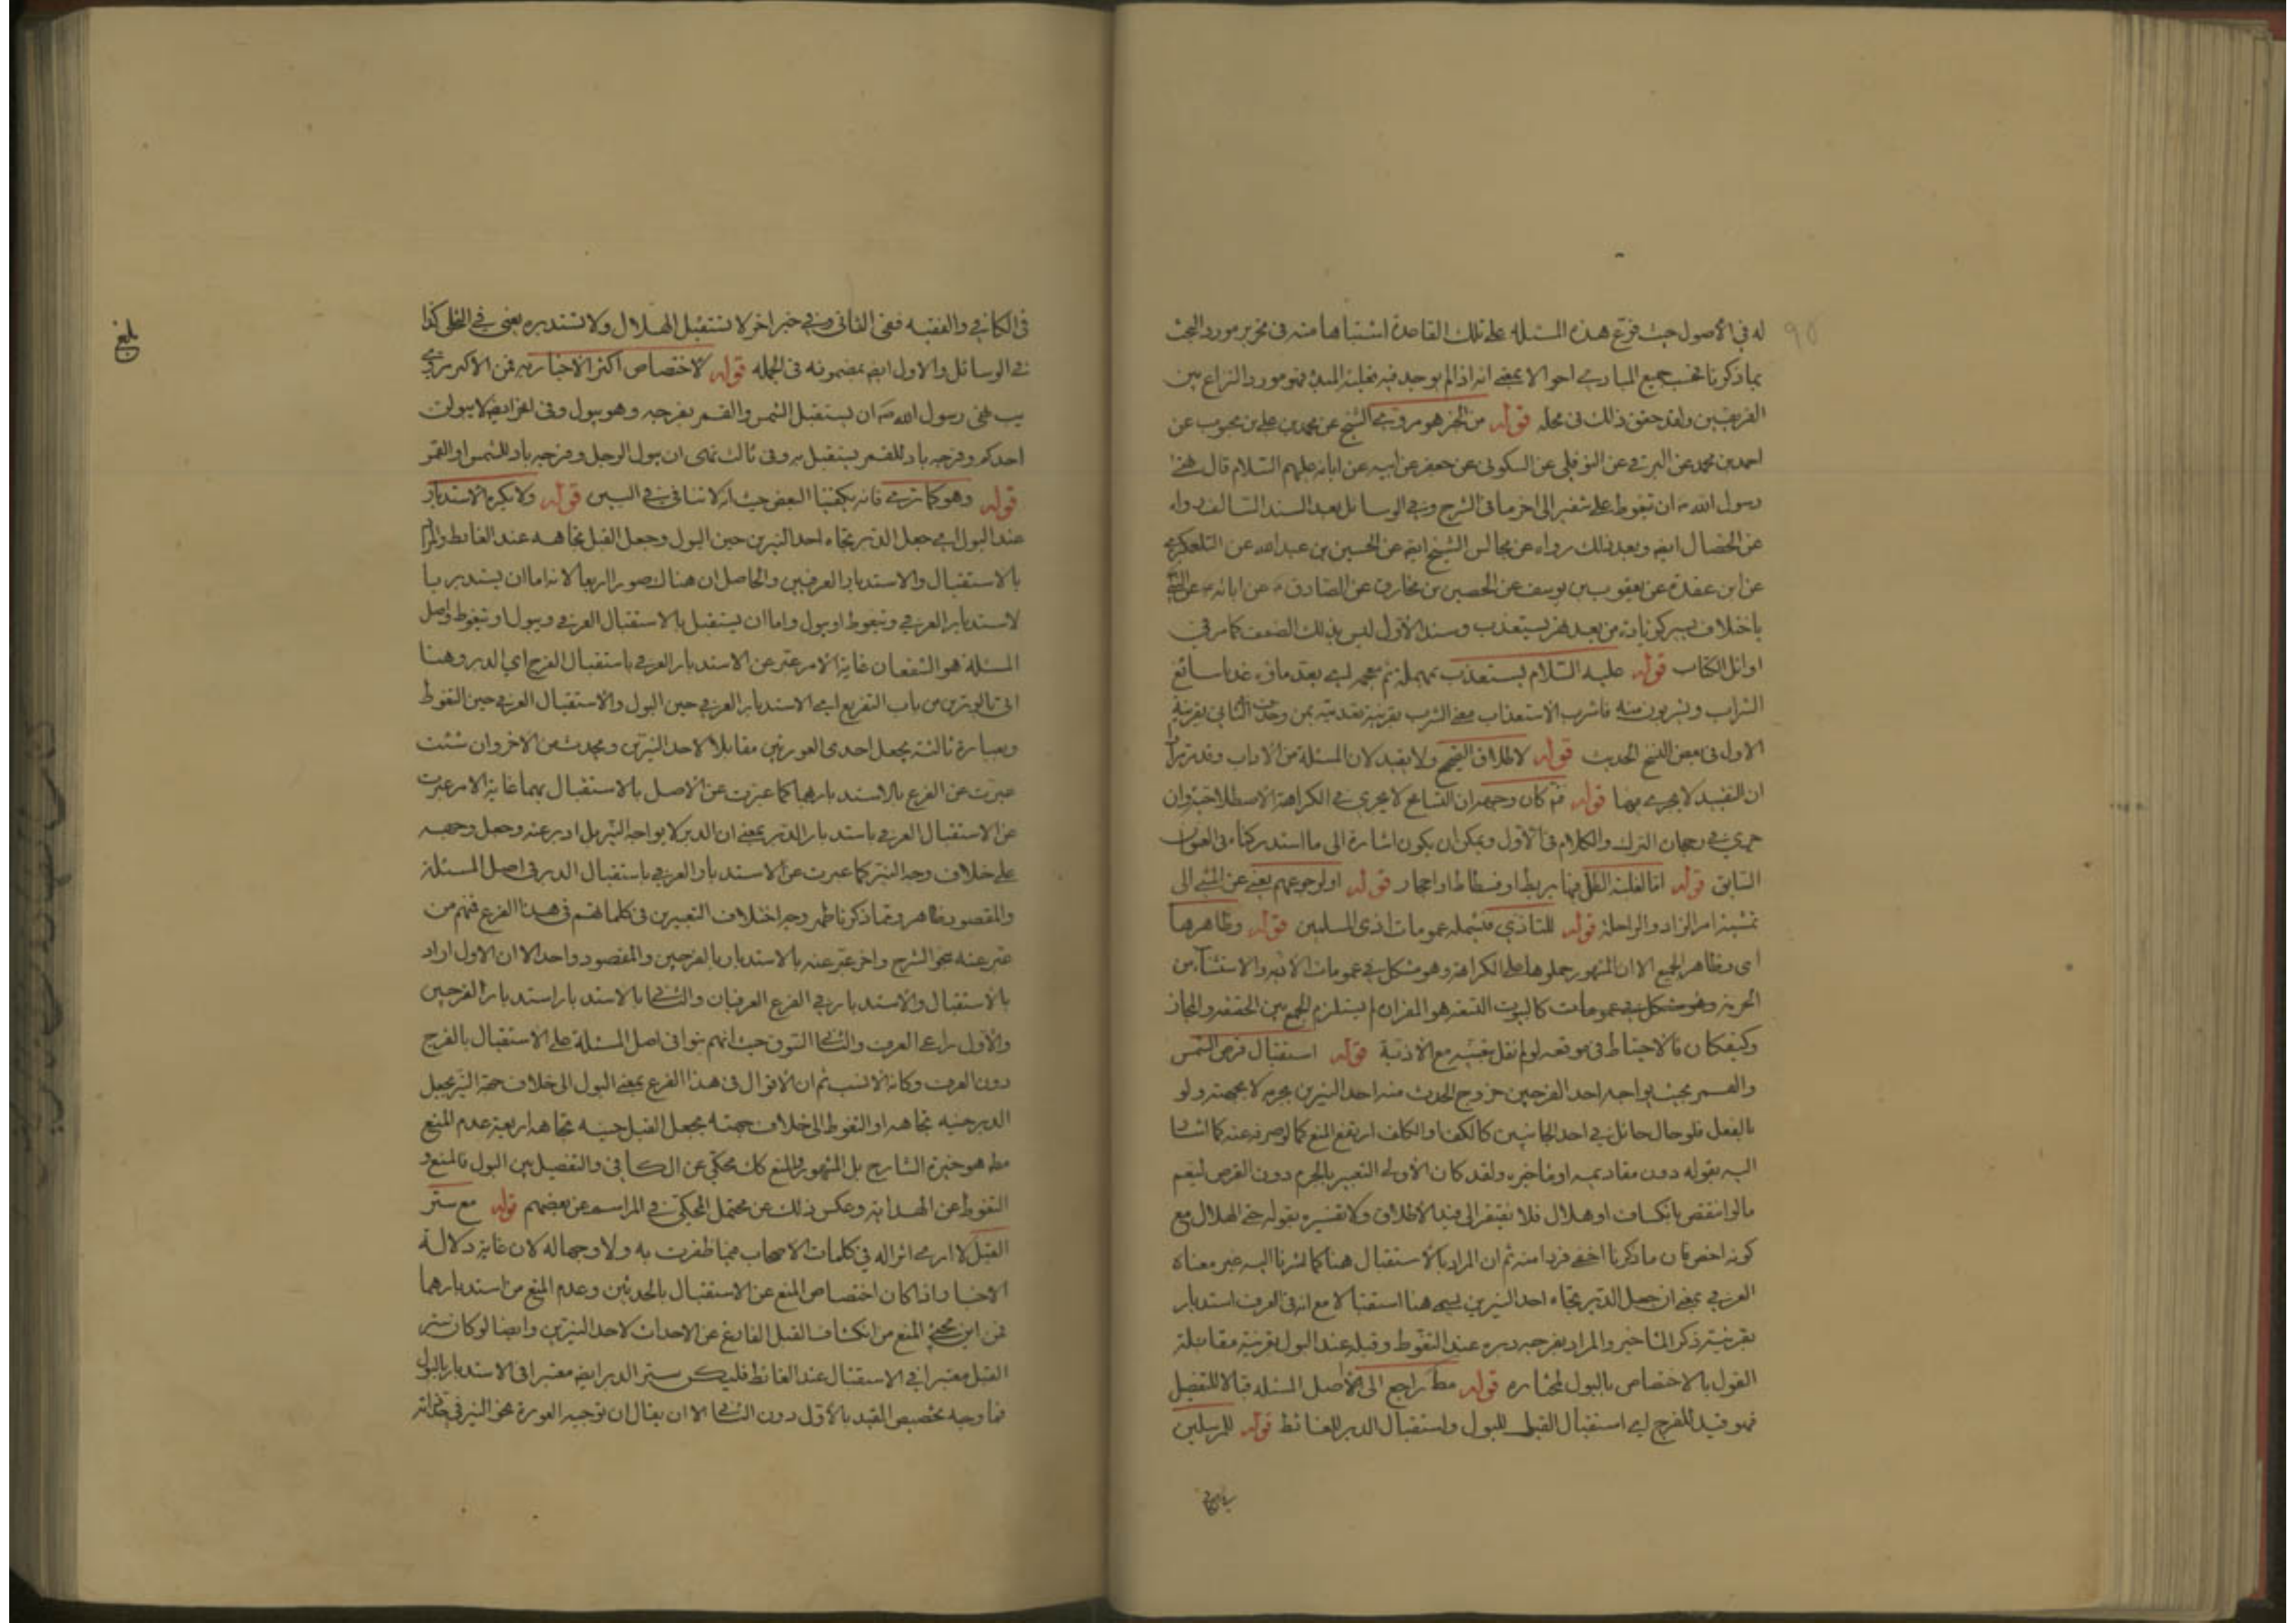 له في الأصول حيث فرّع هذه المسئلة على تلك القاعدة اشتباها منه في تحرير مورد البحث
بما ذكرنا جميع المبادي احوالا بمعنى انه اذا لم يوجد فيه فعلية المبدء فهو مورد النزاع بين
الفريقين ولقد حقق ذلك في محله قوله من الخبر هو مروي الشيخ عن محمد بن علي بن محبوب عن
احمد بن محمد عن البرقي عن النوفلي عن السكوني عن جعفر عن ابيه عن ابائه عليهم السلام قال نهى
رسول الله ص ان تغوط على شفير الى اخر ما في الشرح وفي الوسائل بعد السند السالف رواه
عن الخصال ايضا وبعد ذلك رواه عن مجالس الشيخ ايضا عن الحسين بن عبيد الله عن التلعكبري
عن ابن عقدة عن يعقوب بن يوسف عن الحصين بن مخارق عن الصادق ع عن ابائه ع عن النبي
باختلاف يسير كزيادة من بعد نهر يستعذب وسند الأول ليس بذلك الضعف كما مر في
اوائل الكتاب قوله عليه السلام يستعذب بمهملة ثم معجمه اي يعد ماؤه عذبا سائغ
الشراب ويشربون منه فاشرب الاستعذاب معنى الشرب بقرينة تعديته بمن وحذف الثاني بقرينة
الاول في بعض النسخ الحديث قوله لاطلاق النهي ولا يقيد لان المسئلة من الاداب وقد تريا
ان التقييد لا يجري فيها قوله ثم كان وجهه ان التسامح لا يجري في الكراهة الاصطلاحية وان
جرى في رجحان الترك والكلام في الأول ويمكن ان يكون اشارة الى ما استدركناه في العنوان
السابق قوله اما لغلبة الظل فيها بربط او فسطاط او احجار قوله او لرجوعهم يعني عن المشي الى
تمشية امر الزاد والراحلة قوله للتاذي فيشمله عمومات اذى المسلمين قوله وظاهرها
اى وظاهر الجميع الا ان المشهور حملوها على الكراهة وهو مشكل في عمومات الاذية والاستثناء من
الحرمة وهو مشكل في عمومات كالبيوت التسعة هو القران يستلزم الجمع بين الحقيقة والمجاز
وكيف كان فالاحتياط في موقعه لو لم نقل بتعينه مع الاذية قوله استقبال قرص الشمس
والقمر بحيث يواجه احد الفرجين خروج الحدث منه احد النيرين بجرمه لا بجهته ولو
بالفعل فلو حال حائل في احد الجانبين كالكف او الكاف ارتفع المنع كما لو صرفه عنه كما اشار
اليه بقوله دون مقاديمه او مآخيره ولقد كان الأولى التعبير بالجرم دون القرص ليعم
ما لو انتقص بانكساف او هلال فلا نفتقر الى قيد الأطلاق ولا تفسيره بقوله حتى الهلال مع
كونه اخص فان ما ذكرنا اخفى فردا منه ثم ان المراد بالأستقبال هنا كما اشرنا اليه غير معناه
العرفي بمعنى ان جعل الدبر تجاه احد النيرين يسمى هنا استقبالا مع انه في العرف استدبار
بقرينة ذكر المآخير والمراد بفرجه دبره عند التغوط وقبله عند البول بقرينة مقابلة
القول بالاختصاص بالبول لمختاره قوله مط راجع الى اصل المسئلة قبالا للتفصيل
فهو قيد للفرج اي استقبال القبل للبول واستقبال الدبر للغائط قوله للمرسلين
في الكافي
في الكافي والفقيه ففي الثاني وفي خبر اخر لا تستقبل الهلال ولا تستدبره يعني في التخلي كذا
في الوسائل والاول ايضا بمضمونه في الجملة قوله لاختصاص اكثر الاخبار به فمن الاكثر مروي
يب نهى رسول الله ص ان يستقبل الشمس والقمر بفرجه وهو يبول وفي اخر ايضا لا يبولن
احدكم وفرجه باد للقمر يستقبل به وفي ثالث نهى ان يبول الرجل وفرجه باد للشمس او القمر
قوله وهو كما ترى فانه يكفينا البعض حيث انه لا تنافي في البين قوله ولا يكره الاستدبار
عند البول اي جعل الدبر تجاه احد النيرين حين البول وجعل القبل تجاهه عند الغائط والمراد
بالاستقبال والاستدبار العرفيين والحاصل ان هناك صورا اربعا لانه اما ان يستدبر با
لاستدبار العرفي وتيغوط او يبول واما ان يستقبل بالاستقبال العرفي ويبول او تيغوط واصل
المسئلة هو الشقعان غاية الامر عبر عن الاستدبار العرفي باستقبال الفرج اي الدبر وهنا
اتى بالاخرين من باب التفريع اي الاستدبار العرفي حين البول والاستقبال العرفي حين التغوط
وبعبارة ثالثة يجعل احدى العورتين مقابلا لاحد النيرين ويحدث من الاخر وان شئت
عبرت عن الفرع بالاستدبار بهما كما عبرت عن الأصل بالاستقبال بهما غاية الامر عبرت
عن الاستقبال العرفي باستدبار الدبر بمعنى ان الدبر لا يواجه النير بل ادبر عنه وجعل وجهه
على خلاف وجه النير كما عبرت عن الاستدبار العرفي باستقبال الدبر في اصل المسئلة
والمقصود ظاهر ومما ذكرنا ظهر وجه اختلاف التعبير في كلماتهم في هذا الفرع فمنهم من
عبر عنه نحو الشرح واخر عبر عنه بالاستدبار بالفرجين والمقصود واحد الا ان الاول اراد
بالاستقبال والاستدبار في الفرع العرفيان والثاني بالاستدبار استدبار الفرجين
والأول راعى العرف والثاني السوق حيث انهم بنوا في اصل المسئلة على الاستقبال بالفرج
دون العرف وكانه الانسب ثم ان الاقوال في هذا الفرع بمعنى البول الى خلاف جهة النير بجعل
الدبر حينئذ تجاهه او التغوط الى خلاف جهته بجعل القبل حينئذ تجاهها اربعة عدم المنع
مط هو خيرة الشارح بل المشهور والمنع كك محكي عن الكافي والتفصيل بين البول فالمنع و
التغوط عن الهداية وعكس ذلك عن محتمل المحكي في المراسم عن بعضهم قوله مع ستر
القبل لا ارى اثرا له في كلمات الاصحاب مما ظفرت به ولا وجها له لان غاية دلالة
الاخبار اذا كان اختصاص المنع عن الاستقبال بالحدثين وعدم المنع من استدبارهما
فمن اين يجئ المنع من انكشاف القبل الفارغ عن الاحداث لاحد النيرين وايضا لو كان ستر
القبل معتبرا في الاستقبال عند الغائط فليكن ستر الدبر ايضا معتبرا في الاستدبار بالبول
فما وجه تخصيص القيد بالأول دون الثاني الا ان يقال ان توجيه العورة نحو النير في
بلغ